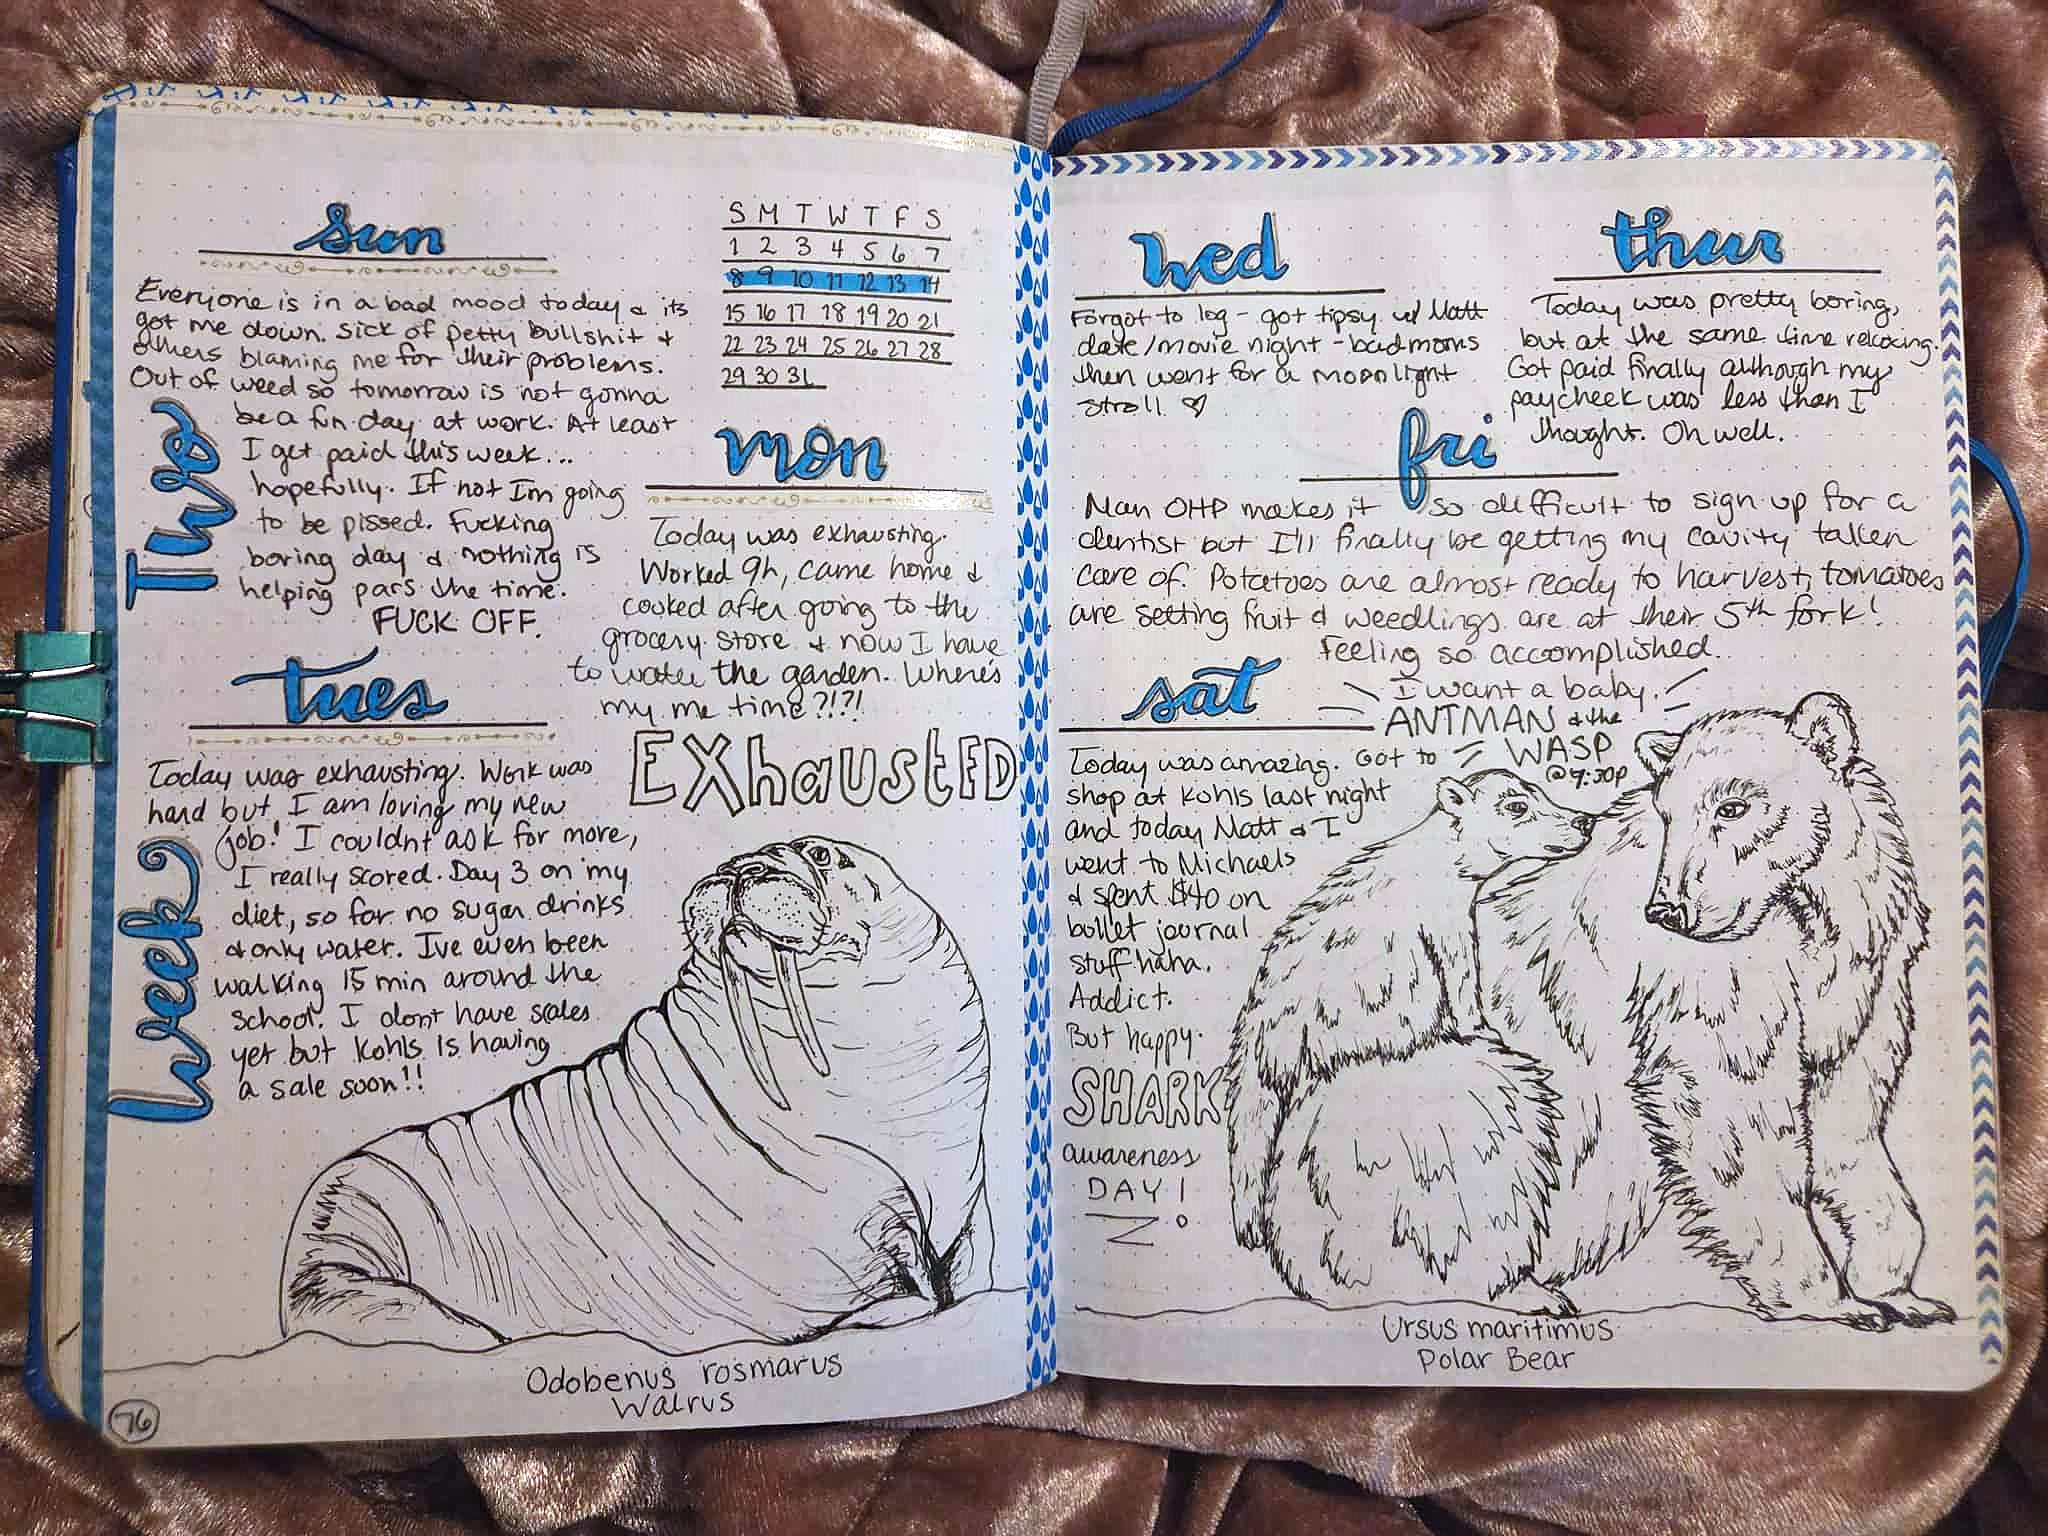 Two Week
sun
Everyone is in a bad mood today & its
got me down. Sick of petty bullshit &
others blaming me for their problems.
Out of weed so tomorrow is not gonna
be a fun day at work. At least
I get paid this week...
hopefully. If not Im going
to be pissed. Fucking
boring day & nothing is
helping pars the time.
FUCK OFF.
S M T W T F S
1 2 3 4 5 6 7
8 9 10 11 12 13 14
15 16 17 18 19 20 21
22 23 24 25 26 27 28
29 30 31
mon
Today was exhausting.
Worked 9h, came home &
cooked after going to the
grocery store & now I have
to water the garden. Where's
my me time?!?!
EXhaustED
tues
Today was exhausting. Work was
hard but I am loving my new
job! I couldnt ask for more,
I really scored. Day 3 on my
diet, so far no sugar drinks
& only water. Ive even been
walking 15 min around the
school. I dont have scales
yet but Kohls is having
a sale soon!!
Odobenus rosmarus
Walrus
76
wed
Forgot to log - got tipsy w/ Matt
date/movie night - badmoms
then went for a moonlight
stroll ♡
thur
Today was pretty boring,
but at the same time relaxing.
Got paid finally although my
paycheck was less than I
thought. Oh well.
fri
Man OHP makes it so difficult to sign up for a
dentist but I'll finally be getting my cavity taken
care of. Potatoes are almost ready to harvest, tomatoes
are setting fruit & weedlings are at their 5th fork!
Feeling so accomplished.
I want a baby.
sat
ANTMAN & the
WASP
@7:30p
Today was amazing. Got to
shop at Kohls last night
and today Matt & I
went to Michaels
& spent $40 on
bullet journal
stuff haha.
Addict.
But happy.
SHARK
awareness
DAY!
Ursus maritimus
Polar Bear